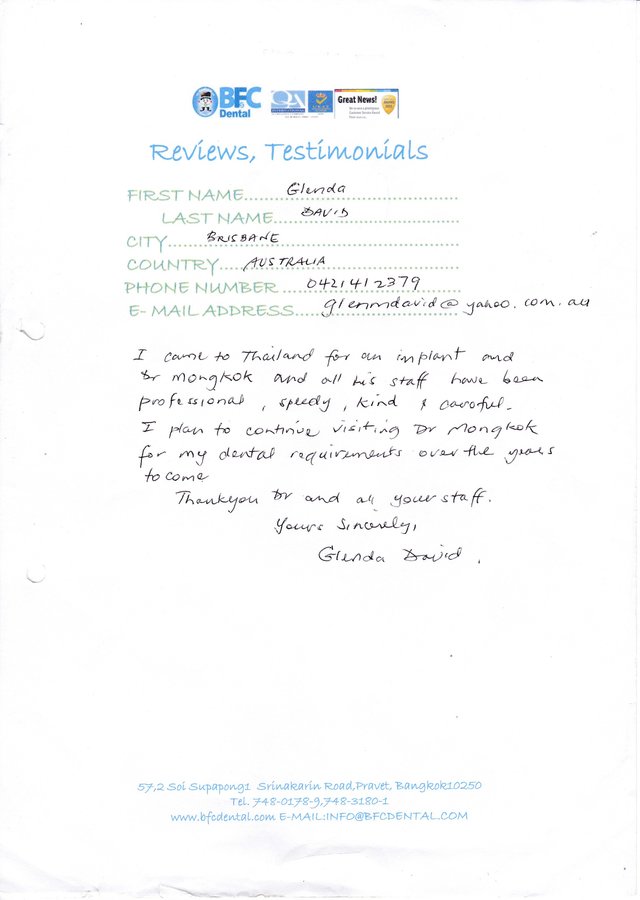 BFC
Dental
QA
INTERNATIONAL
Great News!
Reviews, Testimonials
FIRST NAME.......Glenda
LAST NAME.......DAVID
CITY.......BRISBANE
COUNTRY.......AUSTRALIA
PHONE NUMBER.......0421412379
E-MAIL ADDRESS.......glenmdavid@yahoo.com.au
I came to Thailand for an implant and
Dr Mongkok and all his staff have been
professional, speedy, kind & careful.
I plan to continue visiting Dr Mongkok
for my dental requirements over the years
to come
Thankyou Dr and all your staff.
Yours Sincerely,
Glenda David.
57,2 Soi Supapong1 Srinakarin Road,Pravet, Bangkok10250
Tel. 748-0178-9,748-3180-1
www.bfcdental.com E-MAIL:INFO@BFCDENTAL.COM